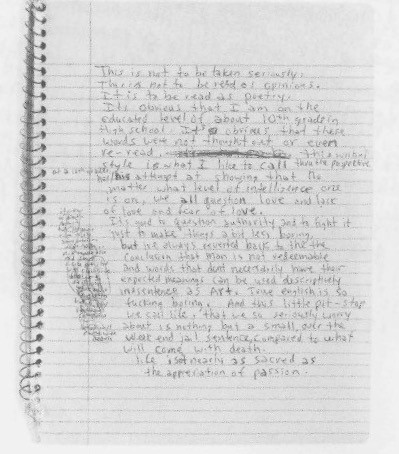 This is not to be taken seriously.
This is not to be read as opinions.
It is to be read as poetry.
Its obvious that I am on the
educated level of about 10th grade in
High school. It's obvious that these
words were not thought out or even
re-read, This writing
style is what I like to call thru the perspective
his attempt at showing that no
matter what level of intelligence one
is on, we all question love and lack
of love and fear of love.
Its good to question authority and to fight it
just to make things a bit less boring,
but ive always reverted back to the the
conclusion that man is not redeemable
and words that dont necessarily have their
expected meanings can be used descriptively
in sentence as Art. True english is so
fucking boring. And this little pit-stop
we call life, that we so seriously worry
about is nothing but a small, over the
week end jail sentence, compared to what
will come with death.
life isnt nearly as sacred as
the appreciation of passion.